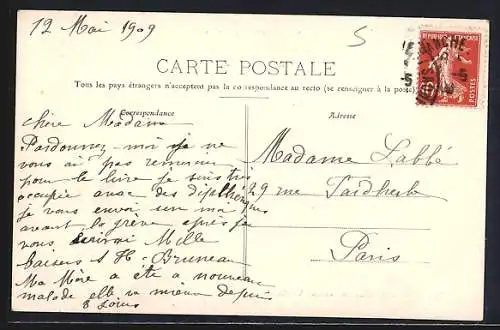 12 Mai 1909
5
CARTE POSTALE
Tous les pays étrangers n'acceptent pas la correspondance au recto (se renseigner à la poste)
Correspondance
Adresse
REPUBLIQUE FRANÇAISE
POSTES
chère Madame
Pardonnez moi je ne
vous ai pas remercier
pour le livre je suis très
occupée avec des
je vous envoi un mot
avant la grève après je
vous écrirai Mille
baisers H. Bruneau
Ma Mère a été a nouveau
malade elle va mieux depuis
8 jours
Madame Labbé
29 rue Faidherbe
Paris